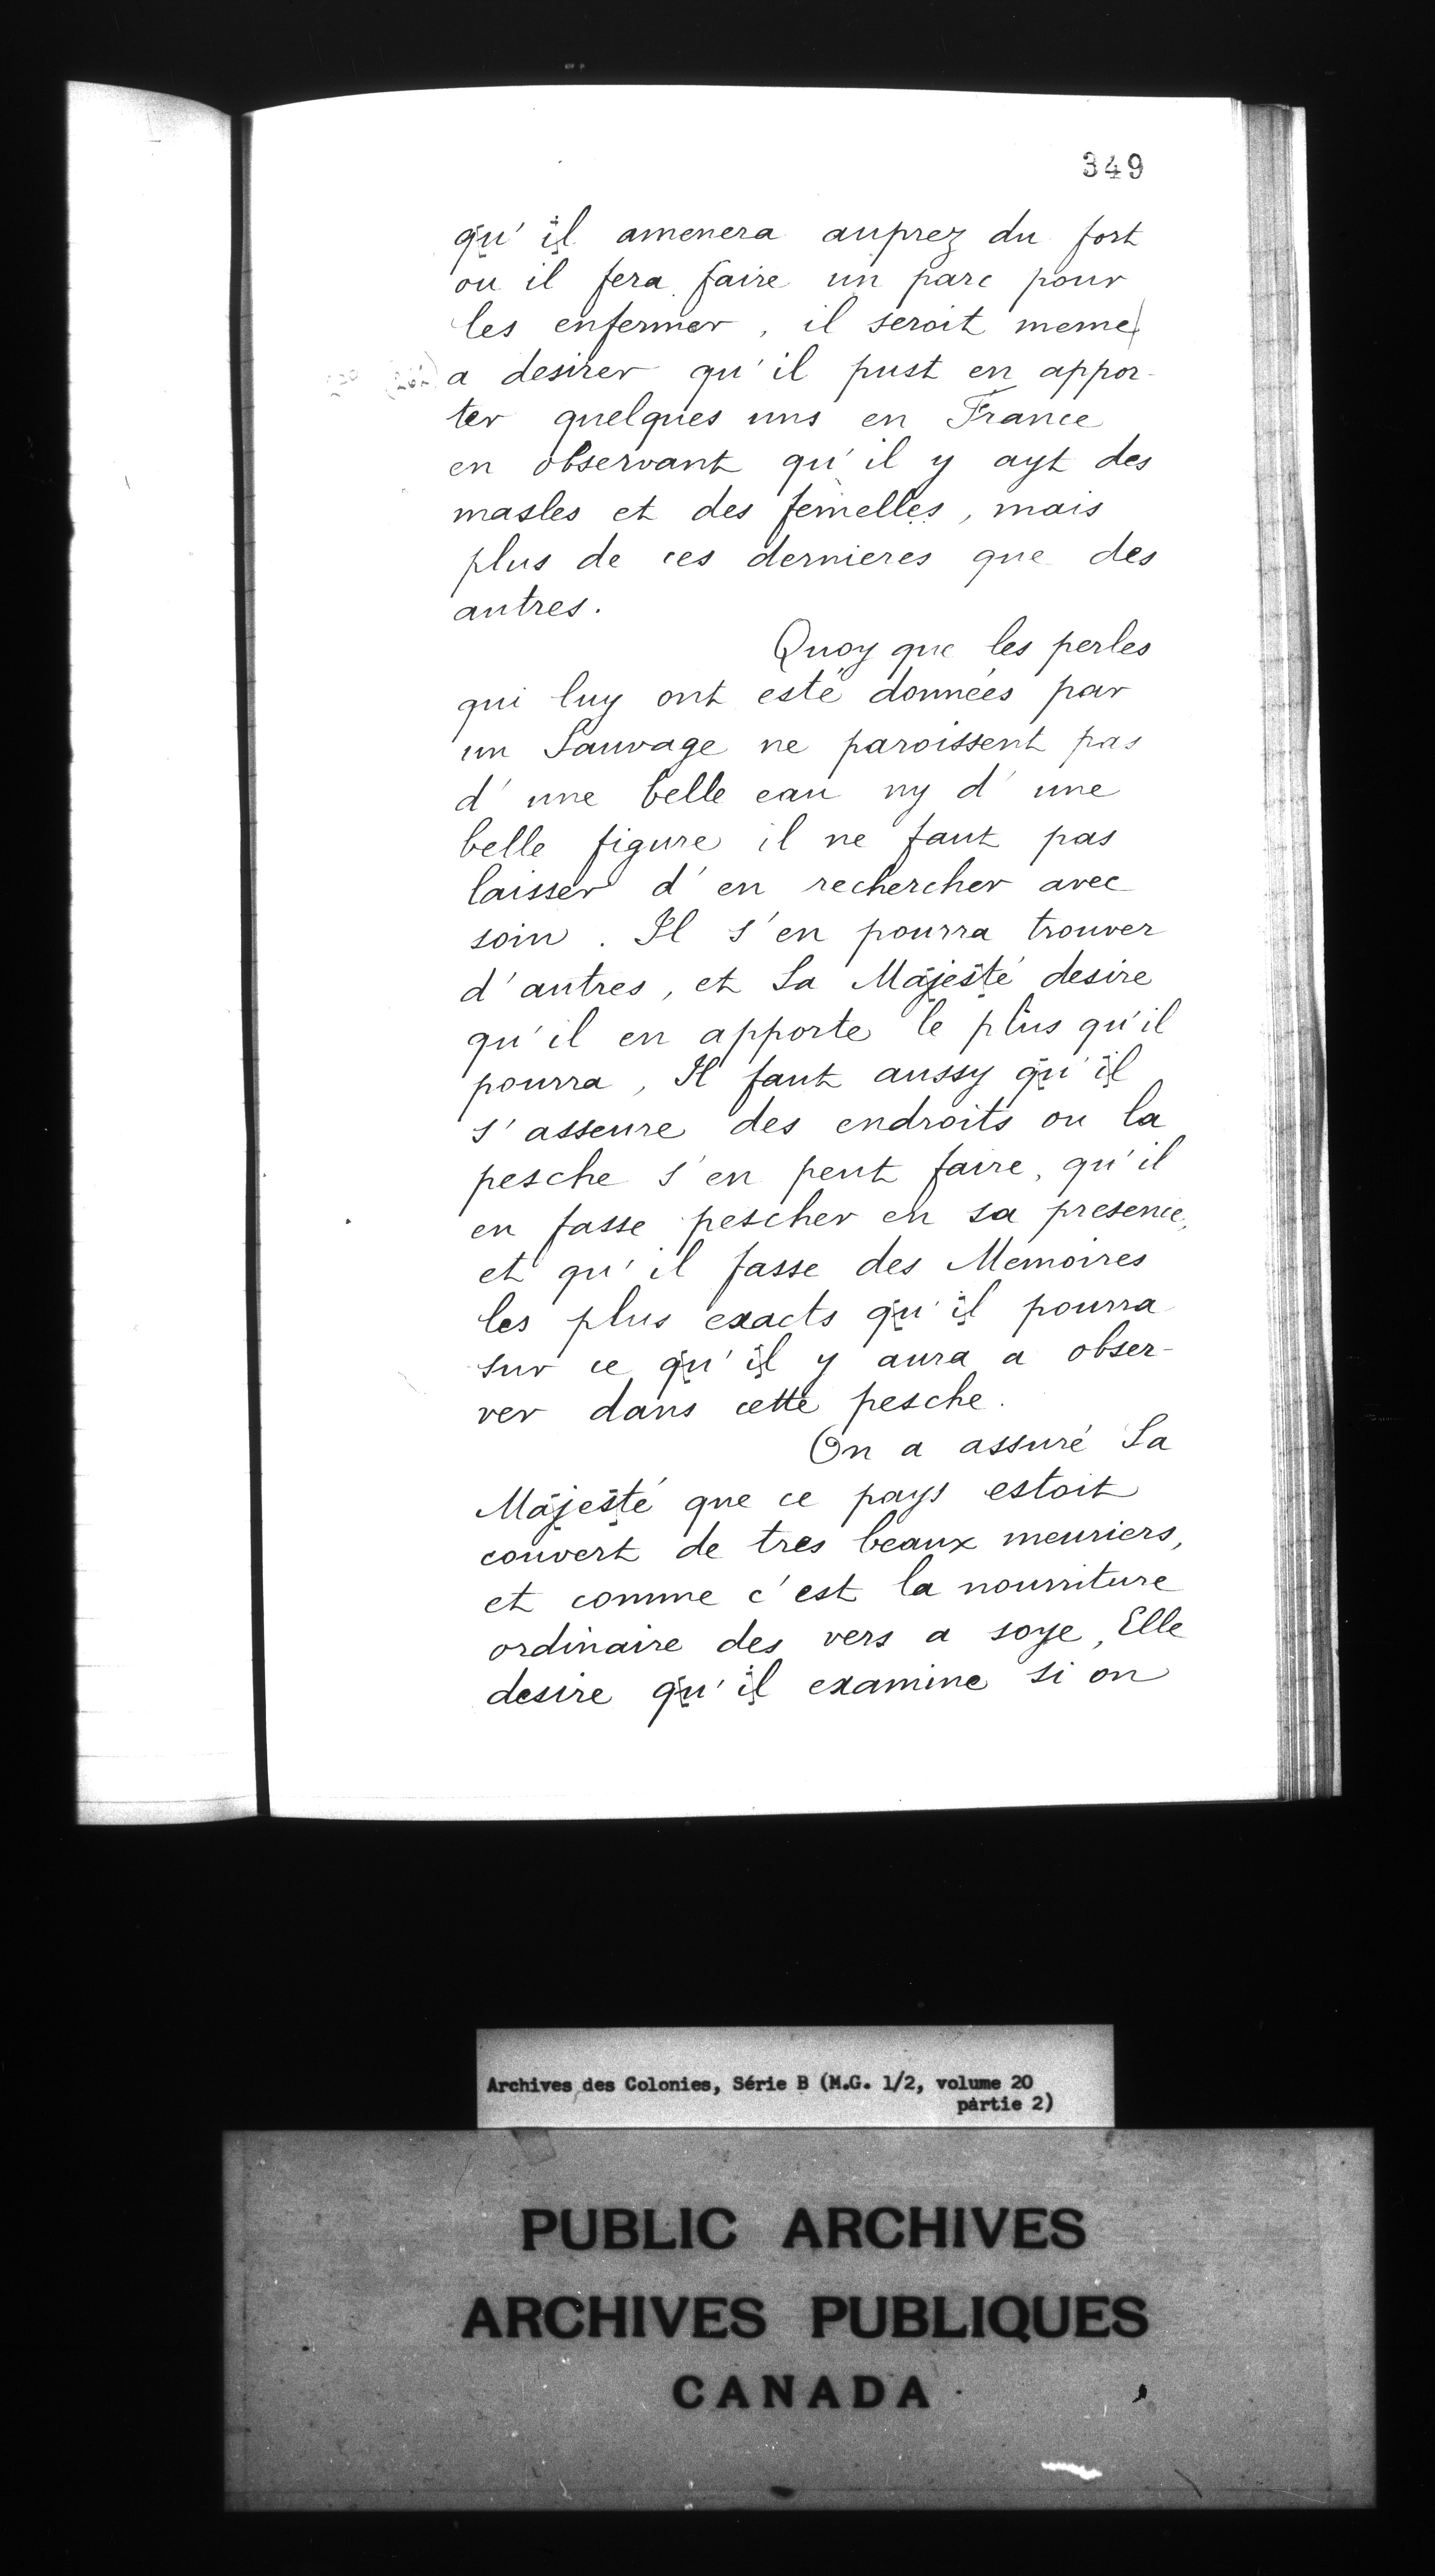 349
qu'il amenera auprez du fort
ou il fera faire un parc pour
les enfermer, il seroit meme
a desirer qu'il pust en appor-
ter quelques uns en France
en observant qu'il y ayt des
masles et des femelles, mais
plus de ces dernieres que des
autres.
Quoy que les perles
qui luy ont esté données par
un Sauvage ne paroissent pas
d'une belle eau ny d'une
belle figure il ne faut pas
laisser d'en rechercher avec
soin. Il s'en pourra trouver
d'autres, et Sa Majesté desire
qu'il en apporte le plus qu'il
pourra, Il faut aussy qu'il
s'asseure des endroits ou la
pesche s'en peut faire, qu'il
en fasse pescher en sa presence,
et qu'il fasse des Memoires
les plus exacts qu'il pourra
sur ce qu'il y aura a obser-
ver dans cette pesche.
On a assuré Sa
Majesté que ce pays estoit
couvert de tres beaux meuriers,
et comme c'est la nourriture
ordinaire des vers a soye, Elle
desire qu'il examine si on
Archives des Colonies, Série B (M.G. 1/2, volume 20
partie 2)
PUBLIC ARCHIVES
ARCHIVES PUBLIQUES
CANADA